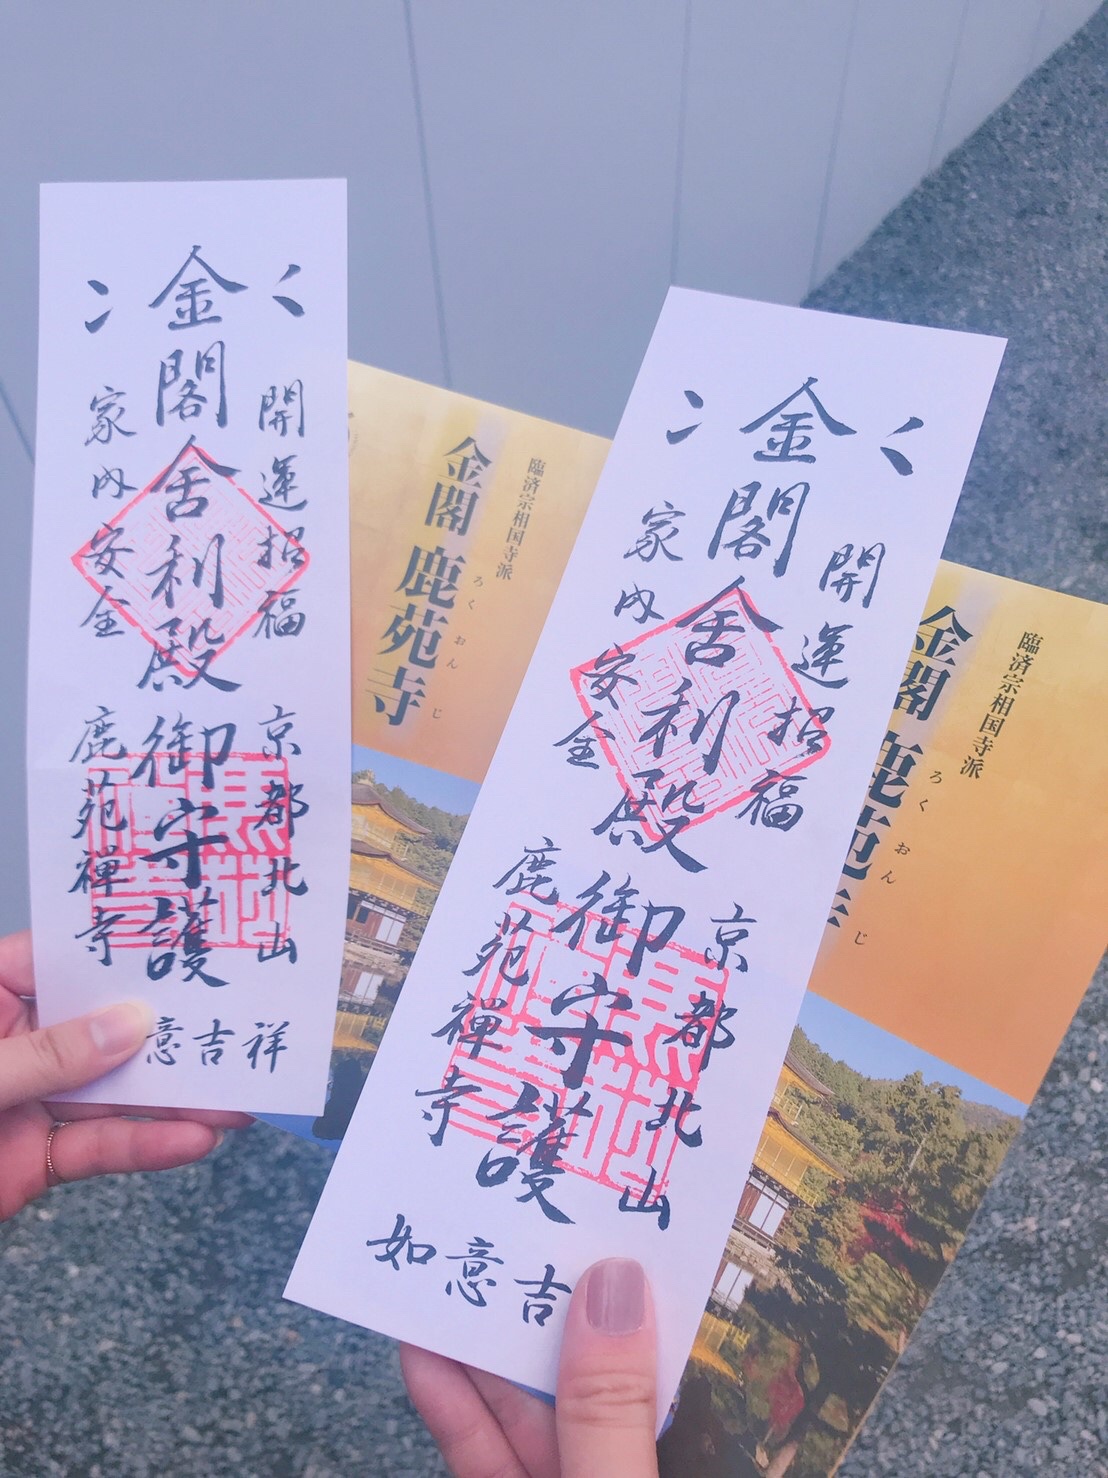 開運招福
金閣舎利殿御守護
家内安全
京都北山
鹿苑禅寺
意吉祥
臨済宗相国寺派
金閣 鹿苑寺
ろくおんじ
開運招福
金閣舎利殿御守護
家内安全
京都北山
鹿苑禅寺
如意吉
臨済宗相国寺派
金閣 鹿苑寺
ろくおんじ